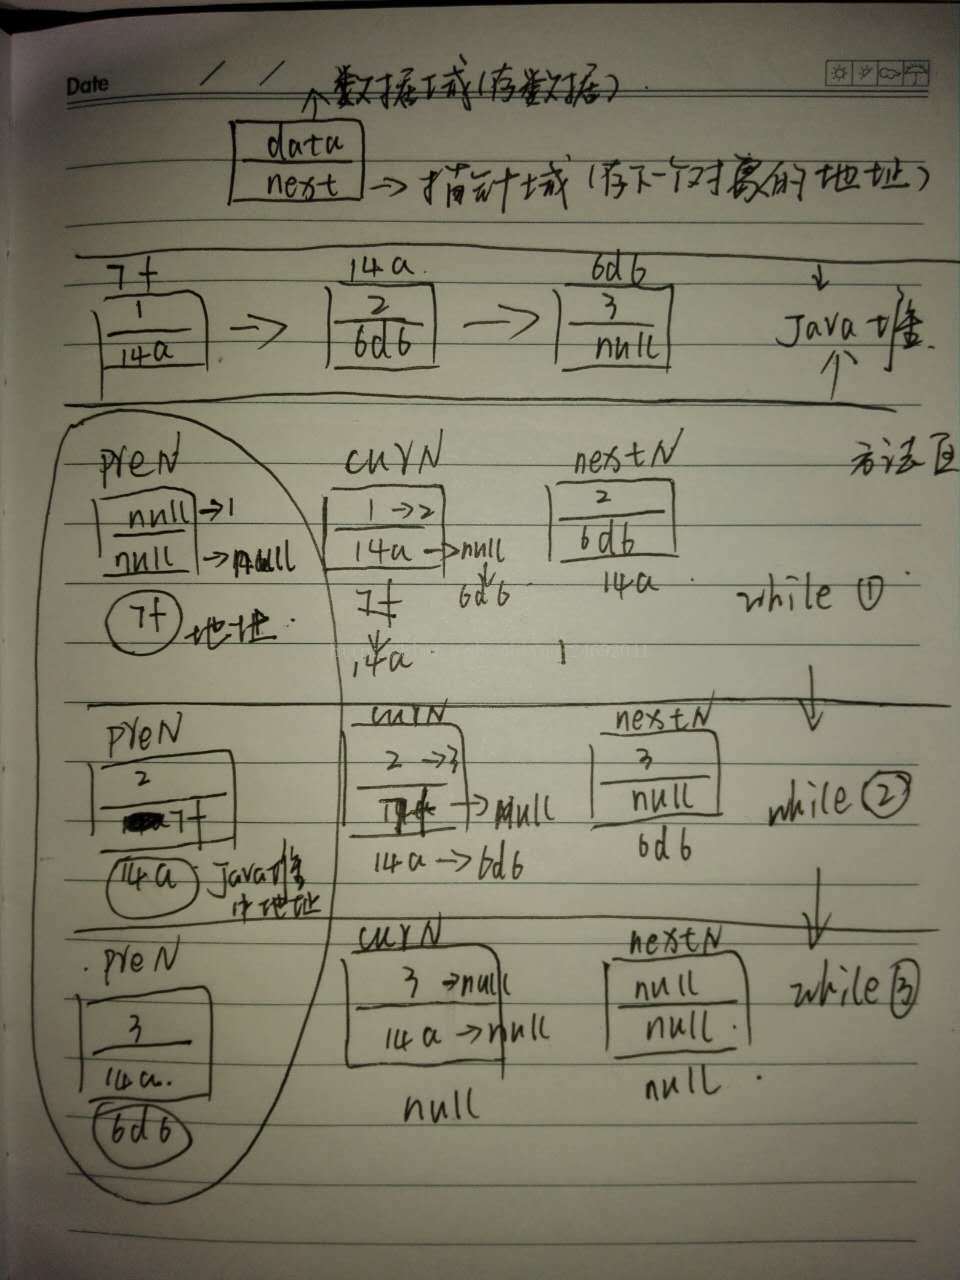 Date / /
数据域(存数据)
data
next → 指针域(存下一个对象的地址)
7f 14a 6d6
1 2 3
14a 6d6 null
Java堆
方法区
preN curN nextN
null → 1 1 → 2 2
null → null 14a → null 6d6
6d6
7f 地址 7f 14a
14a
while ①
preN curN nextN
2 2 → 3 3
7f → null null
14a Java堆 14a → 6d6 6d6
中地址
while ②
preN curN nextN
3 3 → null null
14a 14a → null null
6d6 null null
while ③